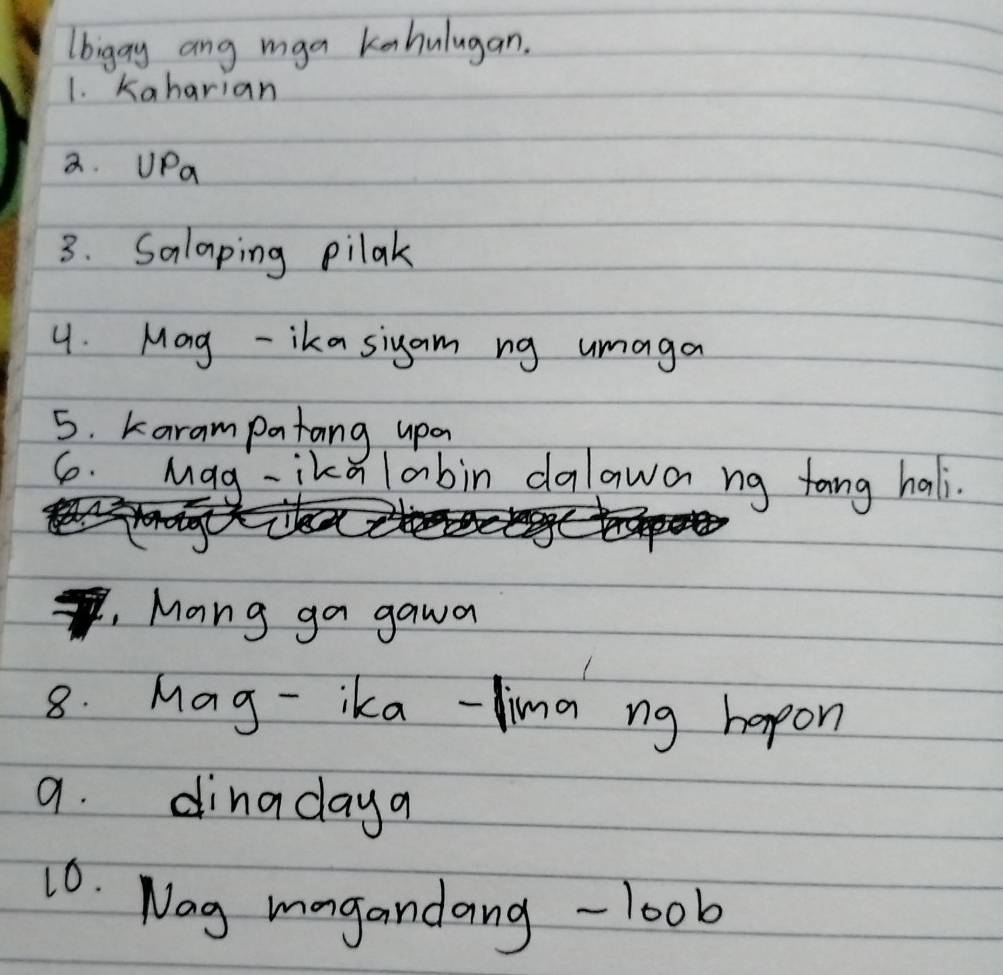 Ibigay ang mga kahulugan.
1. Kaharian
2. UPa
3. Salaping pilak
4. Mag - ika siyam ng umaga
5. Karampatang upa
6. Mag - ika labin dalawa ng tang hali.
7. Mang ga gawa
8. Mag - ika - lima ng hapon
9. dinadaya
10. Nag magandang - loob